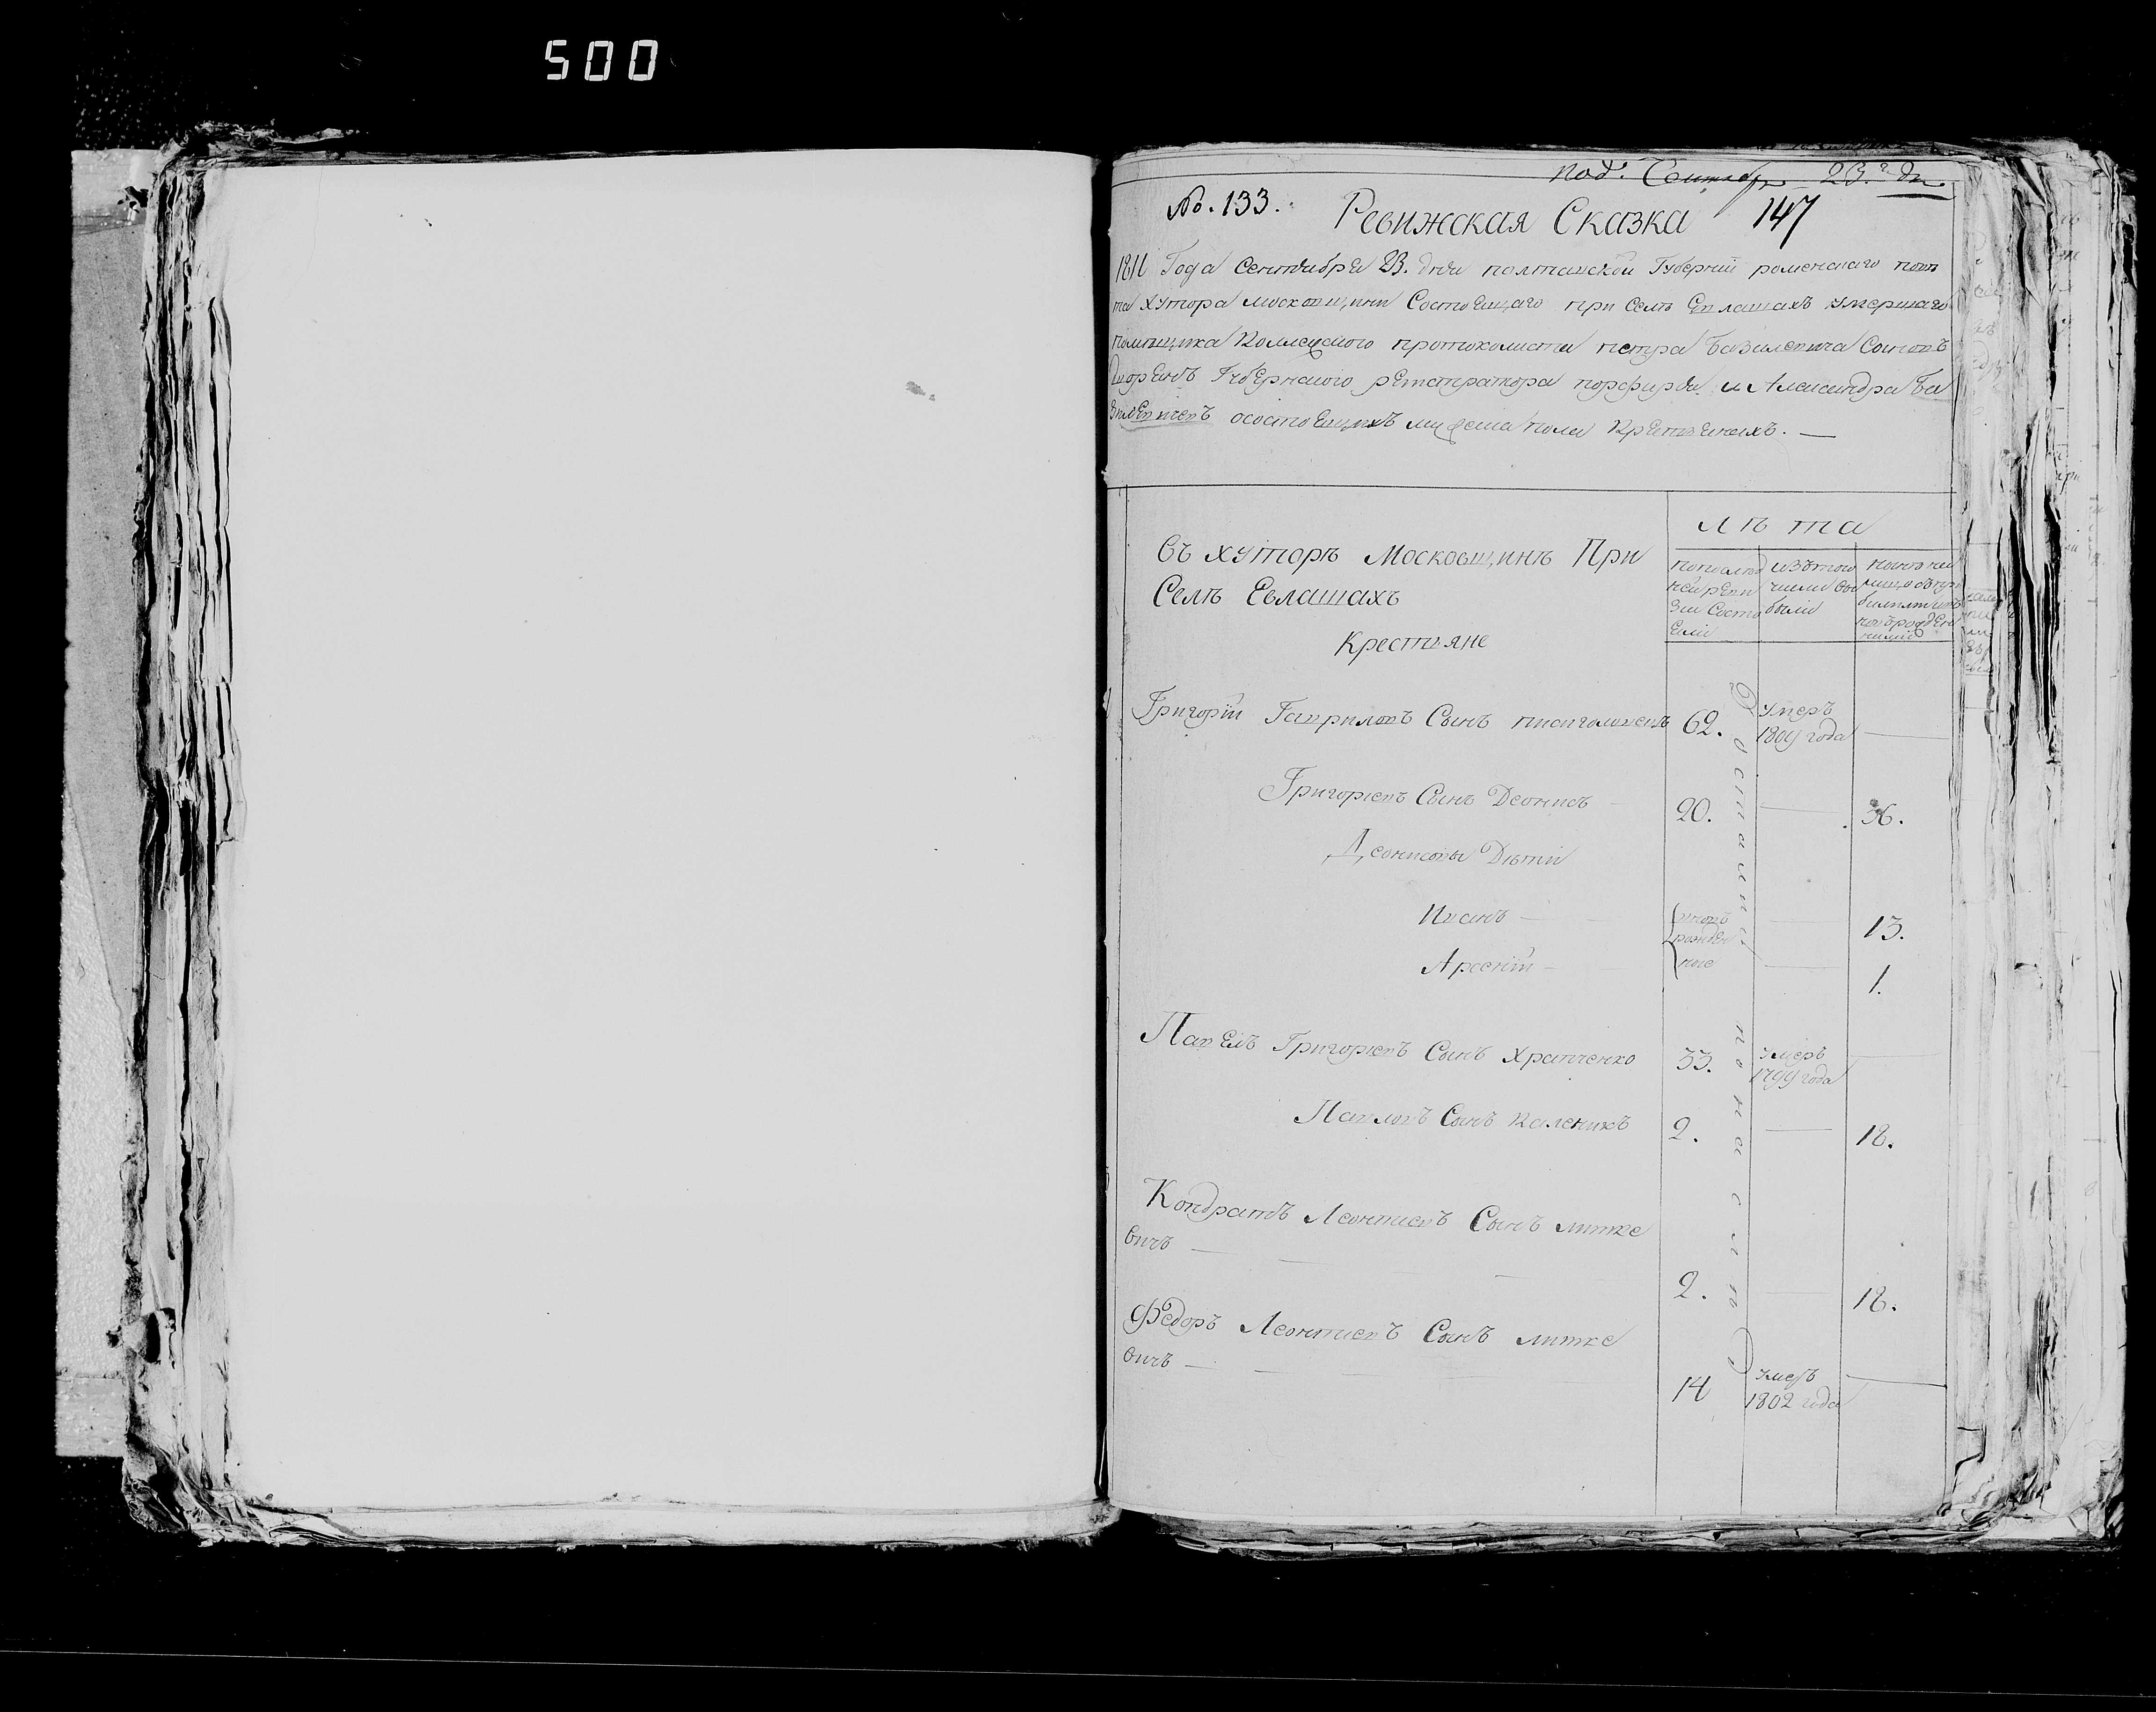 500
под. Сентября 23.го дн.
No. 133.
Ревижская Сказка 147
1811 Года сентября 23. дня полтавской Губернии роменскаго пове
та хутора московщини Состоящаго при селѣ Евлашахъ умершаго
помѣщика Коллежского протоколиста петра базилевича Синовъ
Дворянъ Губернского регистратора порфиря и Александра Ба
зилевичевъ осостоящихъ мужеска пола Крестянахъ. —
Въ хуторѣ Московщинѣ При
Селѣ Евлашахъ
Крестьяне
Лѣта
попослед
ней реви
зіи состо
яли
изътого
числа вы
были
Григорій Гаврилов Сынъ 62. умеръ 1809 года —
Григориевъ Сынъ Деонисъ 20. — 36.
Деонисовы Дети
Иванъ — — 13.
вновь
рожден
ние
Арсеній — — 1.
Павелъ Григориевъ Сынъ Храпченко 33. умеръ 1799 года —
Павловъ Сынъ Каленикъ 2. — 18.
Кондратъ Леонтиевъ Сынъ литке
вичъ — 2. — 18.
Федоръ Леонтиевъ Сынъ литке
вичъ — 14 умеръ 1802 года —